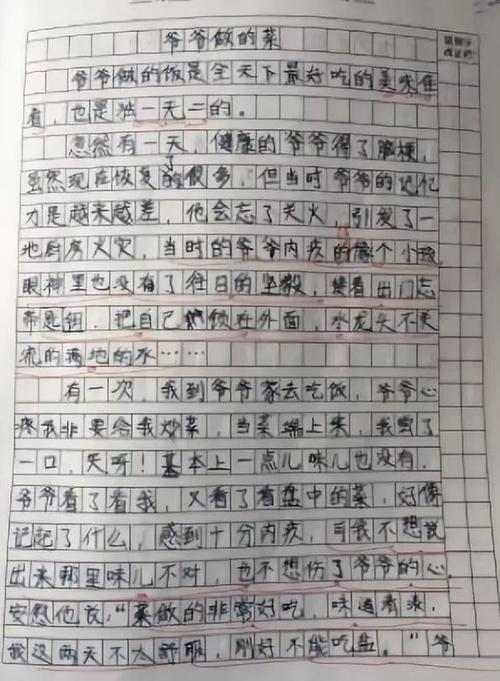 爷爷做的菜
爷爷做的饭是全天下最好吃的美味佳
肴，也是独一无二的。
忽然有一天，健康的爷爷得了脑梗，
虽然现在恢复了的很多，但当时爷爷的记忆
力是越来越差，他会忘了关火，引发了一
地厨房火灾，当时的爷爷内疚的像个小孩
眼神里也没有了往日的坚毅，接着出门忘
带匙钥，把自己锁在外面，水龙头不关
流的满地的水……
有一次，我到爷爷家去吃饭，爷爷心
疼我非要给我炒菜，当菜端上来，我尝了
一口，天呀！基本上一点儿味儿也没有，
爷爷看了看我，又看了看盘中的菜，好像
记起了什么，感到十分内疚，可我不想说
出来那里味儿不对，也不想伤了爷爷的心，
安慰他说：“菜做的非常好吃，味道清淡，
我这两天不太舒服，刚好不能吃盐。”爷